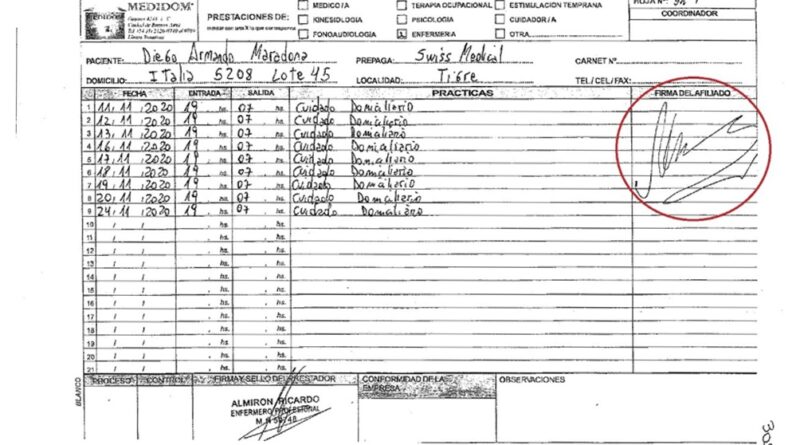 MEDIDOM
PRESTACIONES DE:
MEDICO/A
TERAPIA OCUPACIONAL
ESTIMULACION TEMPRANA
KINESIOLOGIA
PSICOLOGIA
CUIDADOR/A
FONOAUDIOLOGIA
ENFERMERIA
OTRA
COORDINADOR
PACIENTE: Diego Armando Maradona PREPAGA: Swiss Medical CARNET Nº:
DOMICILIO: Italia 5208 Lote 45 LOCALIDAD: Tigre TEL/CEL/FAX:
FECHA ENTRADA SALIDA PRACTICAS FIRMA DEL AFILIADO
1 11/11/2020 19 hs 07 hs. Cuidado Domiciliario
2 12/11/2020 19 hs 07 hs. Cuidado Domiciliario
3 13/11/2020 19 hs 07 hs. Cuidado Domiciliario
4 16/11/2020 19 hs 07 hs. Cuidado Domiciliario
5 17/11/2020 19 hs 07 hs. Cuidado Domiciliario
6 18/11/2020 19 hs 07 hs. Cuidado Domiciliario
7 19/11/2020 19 hs 07 hs. Cuidado Domiciliario
8 20/11/2020 19 hs 07 hs. Cuidado Domiciliario
9 24/11/2020 19 hs 07 hs. Cuidado Domiciliario
10 / / hs. hs.
11 / / hs. hs.
12 / / hs. hs.
13 / / hs. hs.
14 / / hs. hs.
15 / / hs. hs.
16 / / hs. hs.
17 / / hs. hs.
18 / / hs. hs.
19 / / hs. hs.
20 / / hs. hs.
21 / / hs. hs.
BLANCO
PROCESO CONTROL FIRMA Y SELLO DEL PRESTADOR CONFORMIDAD DE LA EMPRESA OBSERVACIONES
ALMIRON RICARDO
ENFERMERO PROFESIONAL